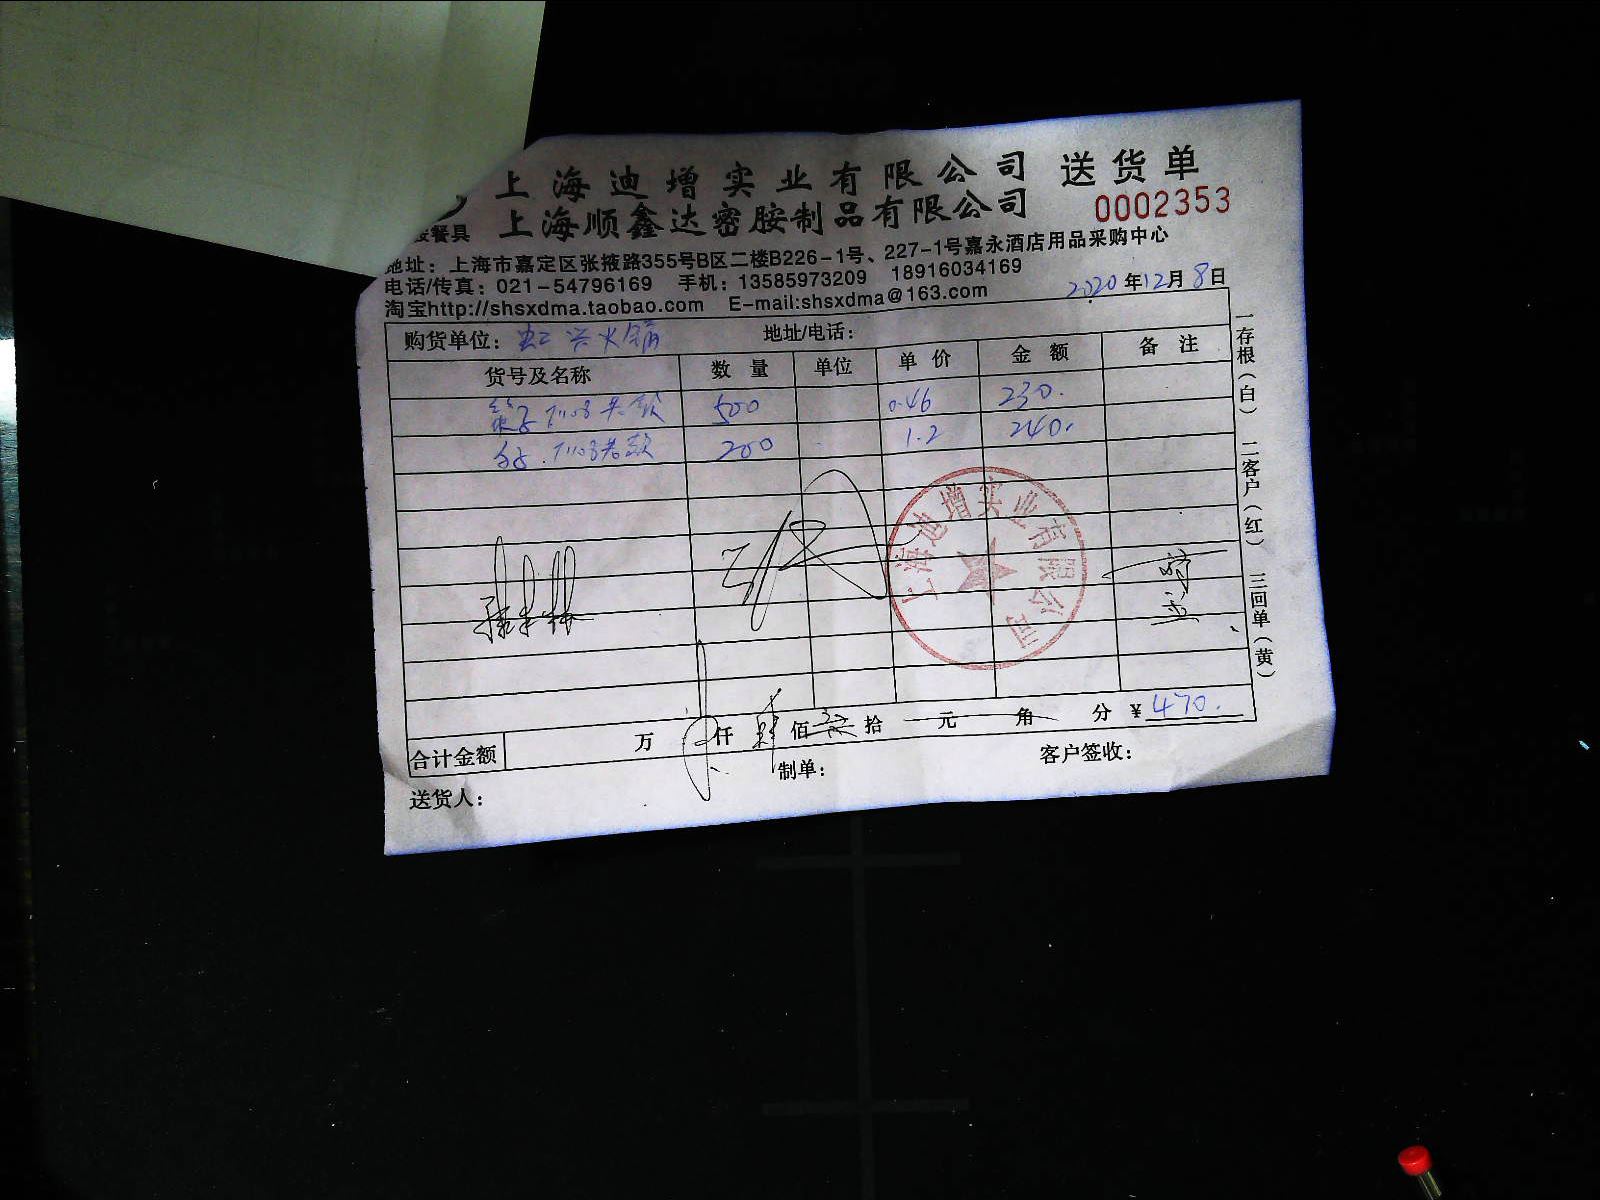 上海迪增实业有限公司 送货单
上海顺鑫达密胺制品有限公司 0002353
餐具
地址：上海市嘉定区张掖路355号B区二楼B226-1号、227-1号嘉永酒店用品采购中心
电话/传真：021-54796169 手机：13585973209 18916034169
淘宝http://shsxdma.taobao.com E-mail:shsxdma@163.com 2020年12月8日
购货单位：虹兴火锅 地址/电话：
货号及名称 数量 单位 单价 金额 备注
500 0.46 230.
200 1.2 240.
上海迪增实业有限公司
合计金额 万 仟 肆佰 拾 元 角 分 ¥470.
送货人： 制单： 客户签收：
一存根（白） 二客户（红） 三回单（黄）